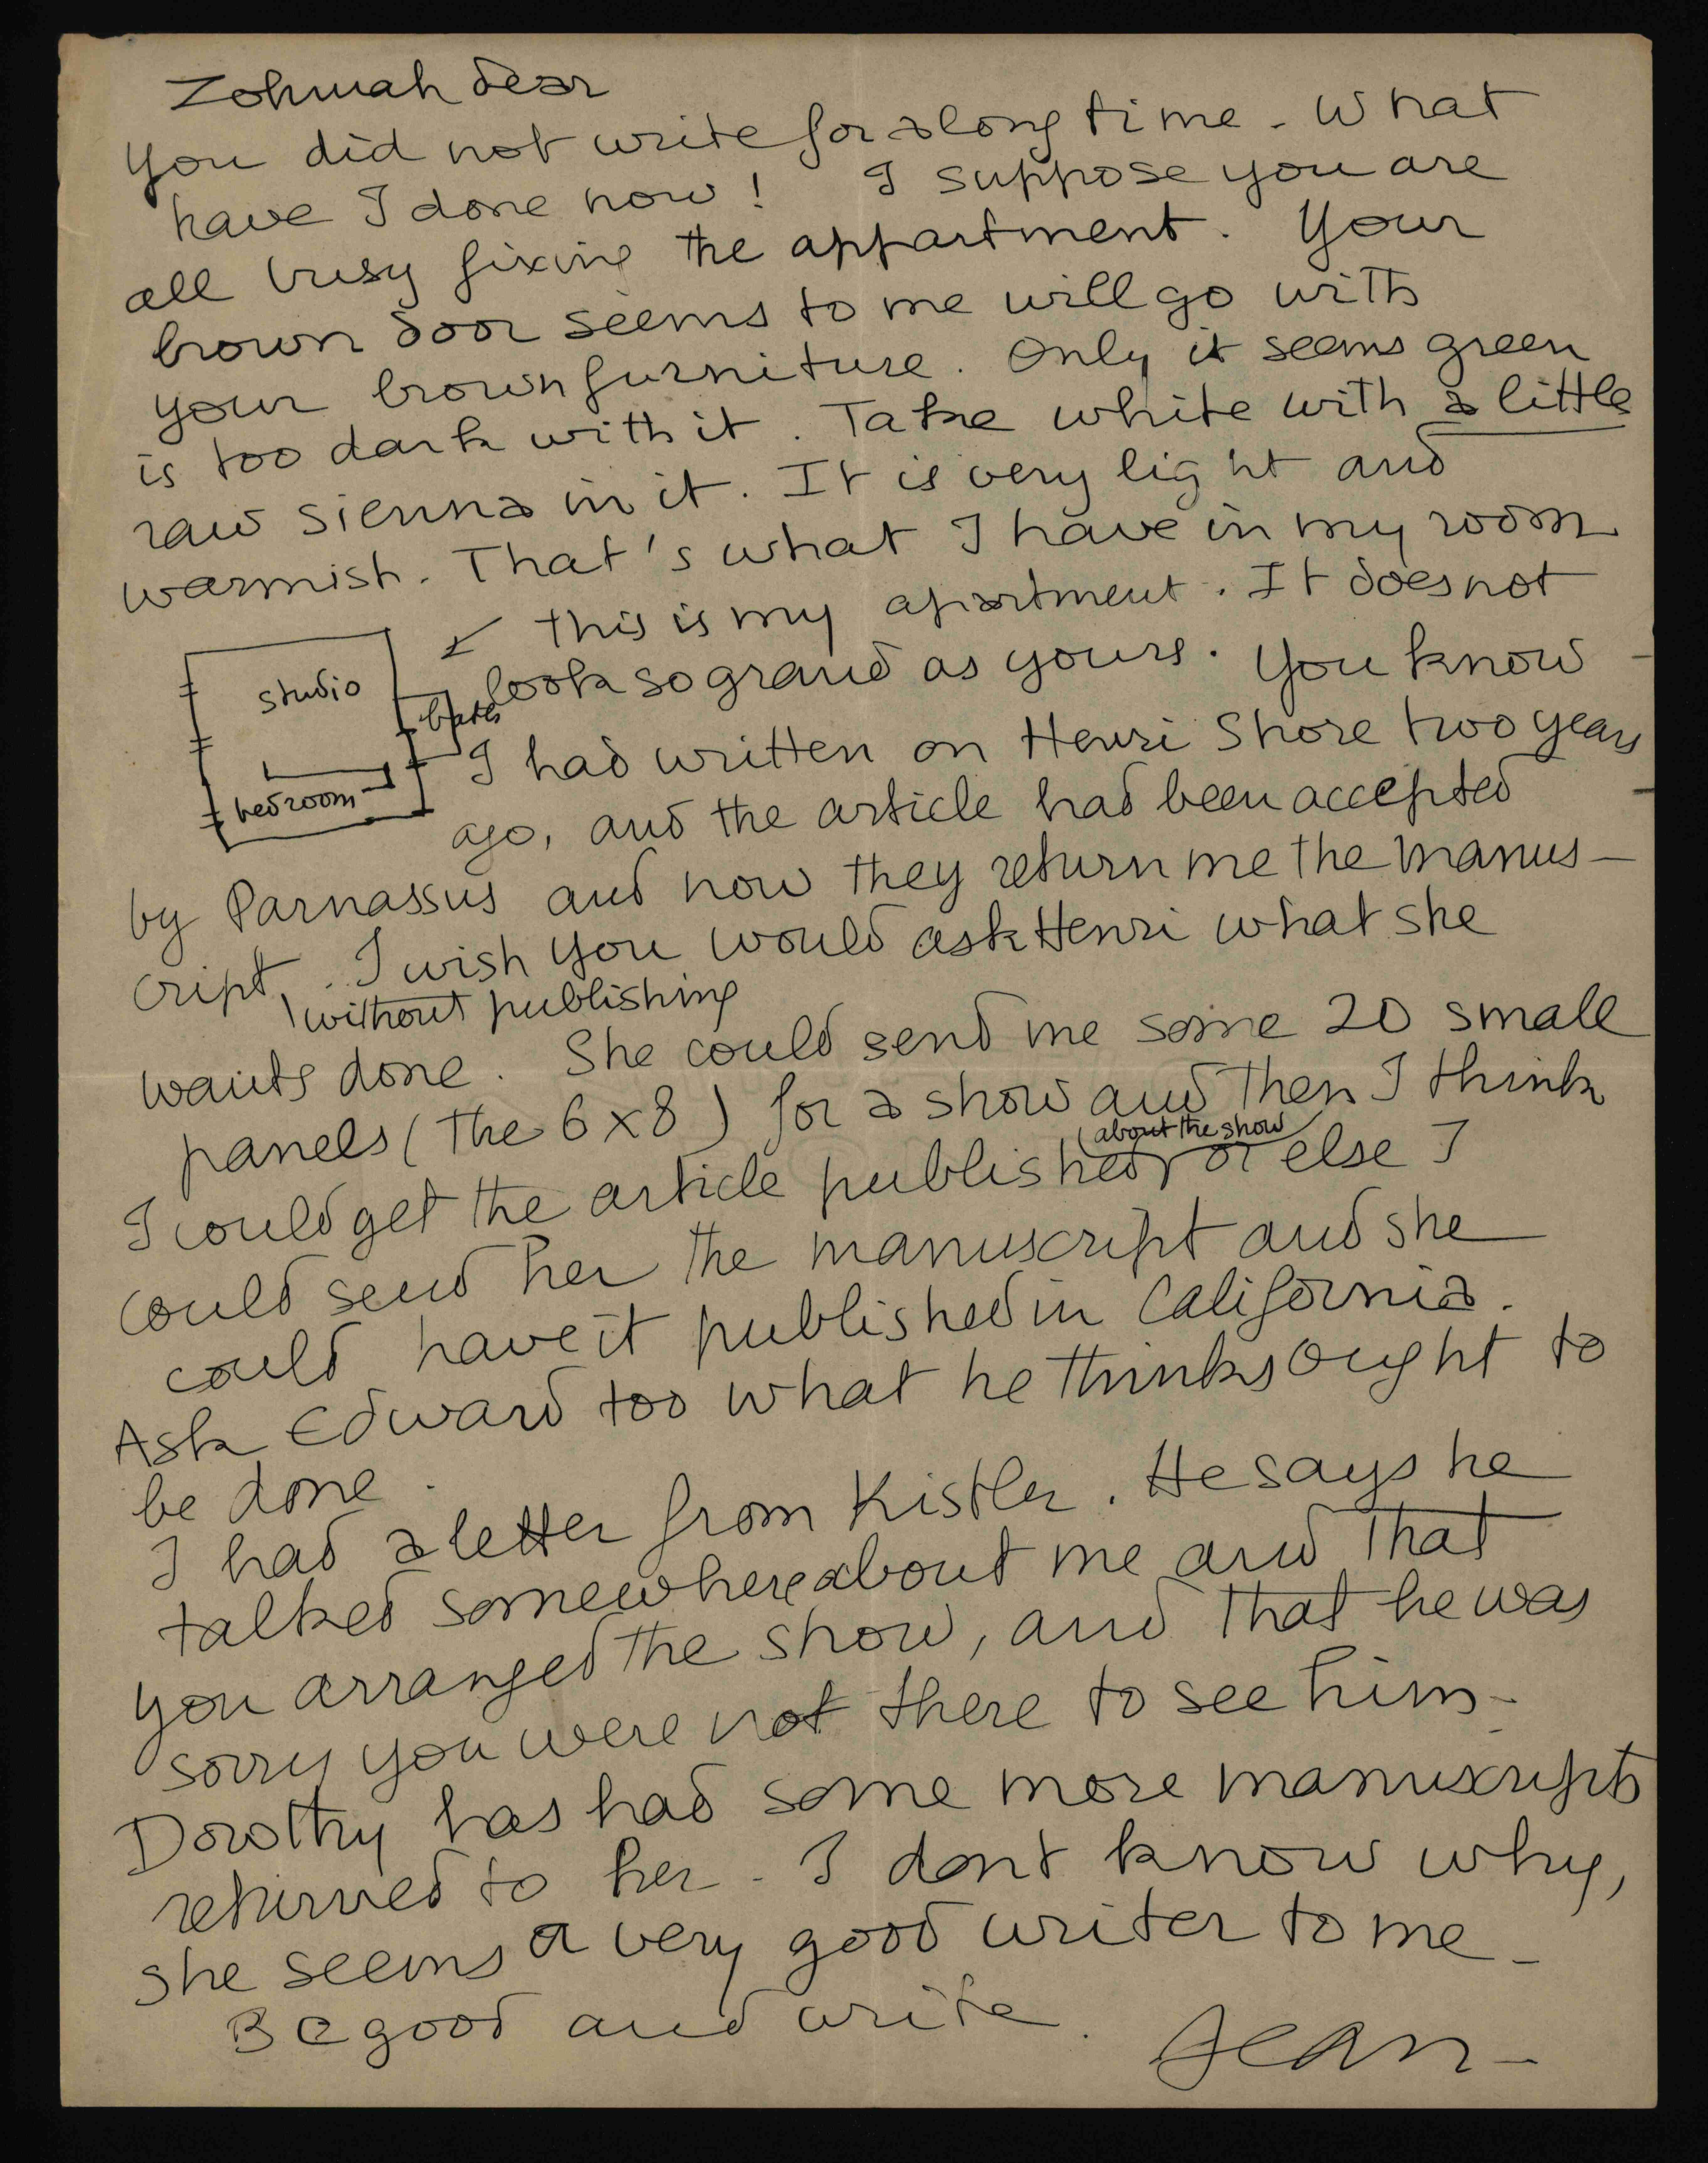 Zohmah dear
You did not write for a long time - What
have I done now! I suppose you are
all busy fixing the appartment. Your
brown door seems to me will go with
your brown furniture. Only it seems green
is too dark with it. Take white with a little
raw sienna in it. It is very light and
warmish. That's what I have in my room
↙ this is my apartment. It does not
look so grand as yours. You know
studio
bath
bedroom
I had written on Henri Shore two years
ago, and the article had been accepted
by Parnassus and now they return me the manus-
cript, I wish you would ask Henri what she
without publishing
wants done. She could send me some 20 small
panels (the 6x8) for a show and then I think
(about the show
I could get the article published or else I
could send her the manuscript and she
could have it published in California.
Ask Edward too what he thinks ought to
be done.
I had a letter from Kistler. He says he
talked somewhere about me and that
you arranged the show, and that he was
sorry you were not there to see him-
Dorothy has had some more manuscripts
returned to her - I dont know why,
she seems a very good writer to me -
Be good and write.
Jean -